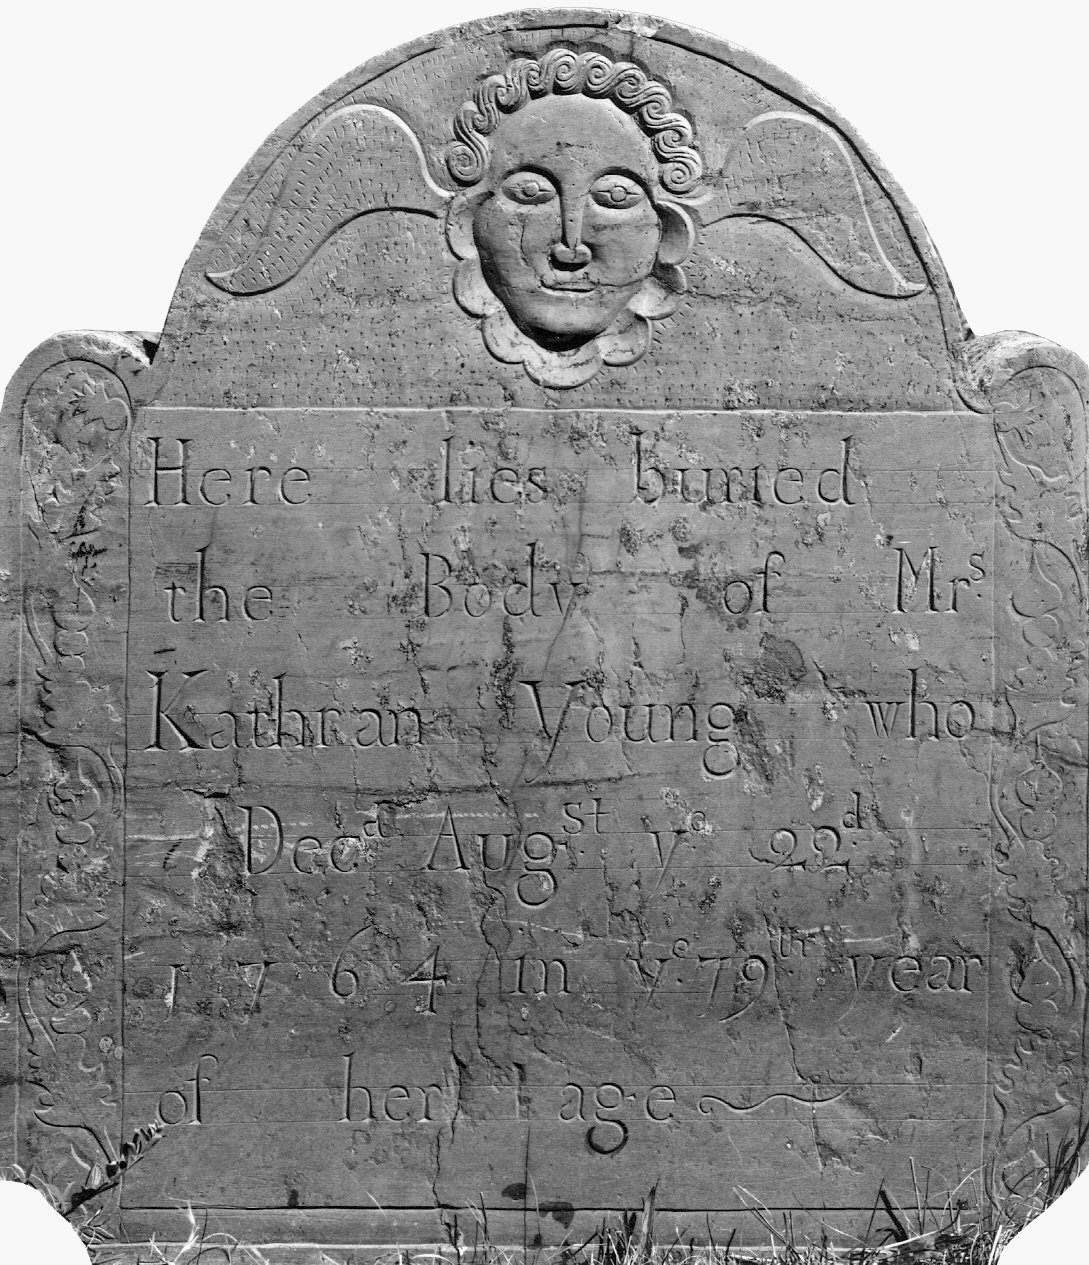 Here lies buried
the Body of Mrs
Kathran Young who
Decd Augst ye 22d
1764 in ye 79th year
of her age